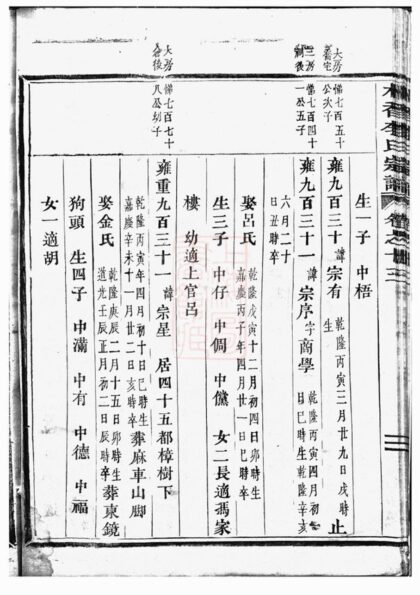 李氏宗譜 卷之十三
大房 悌七百五十
公次子
生一子 中梧
雍九百三十 諱宗有 生 乾隆丙寅三月廿九日戌時 止
三房 悌七百四十
一公五子
雍九百三十一 諱宗序 字商學 乾隆丙寅四月初
日巳時生乾隆辛亥
六月二十
日丑時卒
娶呂氏 乾隆戊寅十二月初四日卯時生
嘉慶丙子年四月廿一日巳時卒
生三子 中仔 中倜 中儻 女二長適馮家
樓 幼適上官呂
大房 悌七百七十
八公幼子
雍重九百三十一 諱宗星 居四十五都樟樹下
乾隆丙寅年四月初十日巳時生
嘉慶辛未十一月廿二日亥時卒 葬麻車山脚
娶金氏 乾隆庚辰二月十五日卯時生
道光壬辰正月初二日辰時卒 葬東鏡
狗頭 生四子 中滿 中有 中德 中福
女一適胡